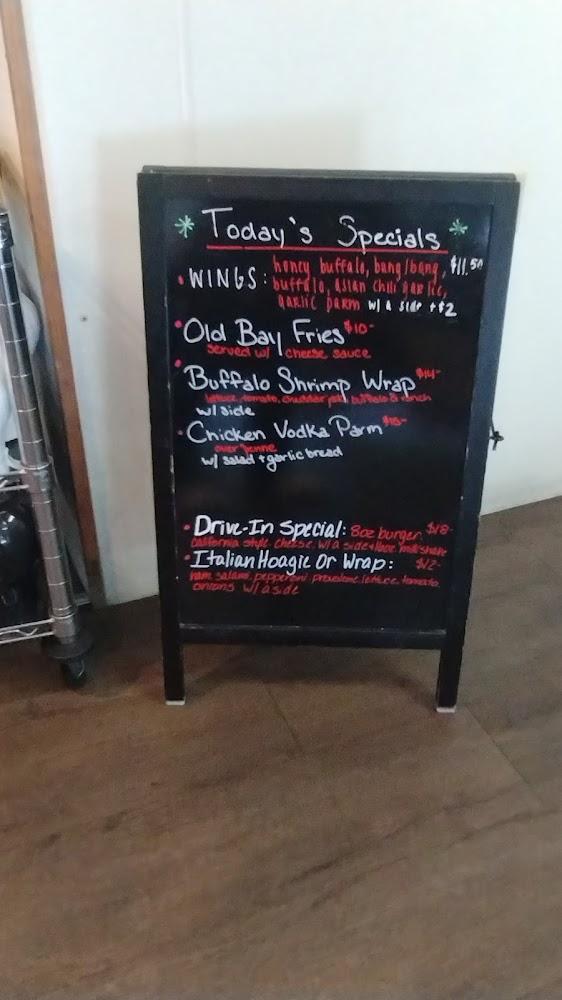 Today's Specials
WINGS: honey buffalo, bang/bang, $11.50
buffalo, asian chili garlic,
garlic parm w/ a side +$2
Old Bay Fries $10-
served w/ cheese sauce
Buffalo Shrimp Wrap $14-
lettuce, tomato, cheddar jack, buffalo & ranch
w/ side
Chicken Vodka Parm
over penne
w/ salad + garlic bread
Drive-In Special: 8oz burger, $18-
california style, cheese, w/ a side + milkshake
Italian Hoagie Or Wrap: $12-
ham, salami, pepperoni, provolone, lettuce, tomato,
onions w/ a side